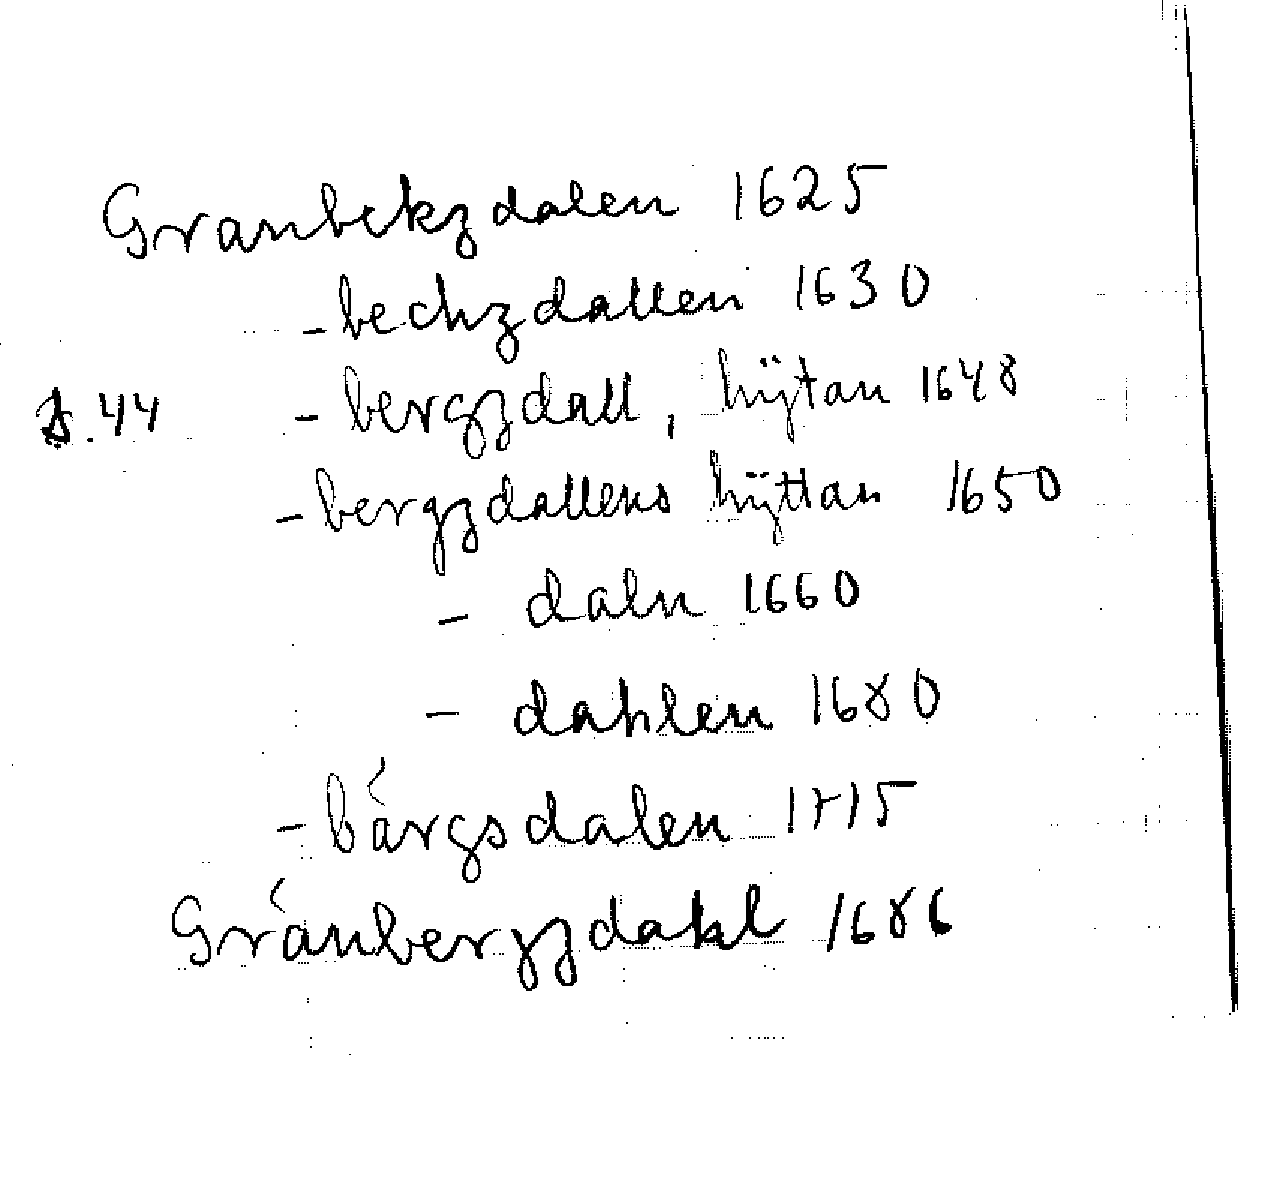 Granbekzdalen 1625
-bechzdallen 1630
- bergzdall, hÿtan 1648
-bergzdallens hÿttan 1650
- daln 1660
- dahlen 1680
-bärgsdalen 1715
Gránbergzdahl 1686